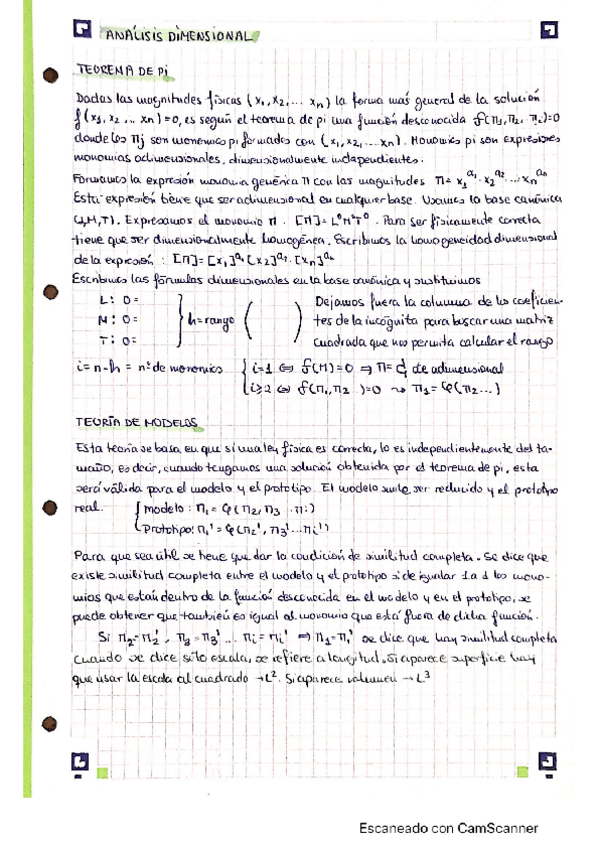 ANÁLISIS DIMENSIONAL
TEOREMA DE Pi
Dadas las magnitudes físicas (x₁, x₂, ... xn) la forma más general de la solución
f(x₁, x₂ ... xn) = 0, es según el teorema de pi una función desconocida f(π₁, π₂, πi)=0
donde los πj son monomios pi formados con (x₁, x₂, ... xn). Monomios pi son expresiones
monomias adimensionales, dimensionalmente independientes.
Formamos la expresión monomia genérica π con las magnitudes π = x₁^a₁ · x₂^a₂ ... xn^an
Esta expresión tiene que ser adimensional en cualquier base. Usamos la base canónica
(L, M, T). Expresamos el monomio π. [π] = L⁰M⁰T⁰. Para ser físicamente correcta
tiene que ser dimensionalmente homogénea. Escribimos la homogeneidad dimensional
de la expresión: [π] = [x₁]^a₁ [x₂]^a₂ · [xn]^an
Escribimos las fórmulas dimensionales en la base canónica y sustituimos
L: 0= Dejamos fuera la columna de los coeficien-
M: 0= } h=rango ( ) tes de la incógnita para buscar una matriz
T: 0= cuadrada que nos permita calcular el rango
i = n-h = nº de monomios { i=1 ⇔ f(π)=0 ⇒ π = de adimensional
i≥2 ⇔ f(π₁, π₂ )=0 → π₁ = φ(π₂ ...)
TEORÍA DE MODELOS
Esta teoría se basa en que si una ley física es correcta, lo es independientemente del ta-
maño, es decir, cuando tengamos una solución obtenida por el teorema de pi, esta
será válida para el modelo y el prototipo. El modelo suele ser reducido y el prototipo
real. { modelo: π₁ = φ(π₂, π₃ · πi)
Prototipo: π₁' = φ(π₂', π₃' ... πi')
Para que sea útil se tiene que dar la condición de similitud completa. Se dice que
existe similitud completa entre el modelo y el prototipo si de igualar 1 a 1 los mono-
mios que están dentro de la función desconocida en el modelo y en el prototipo, se
puede obtener que también es igual al monomio que está fuera de dicha función.
Si π₂=π₂', π₃=π₃' ... πi=πi' ⇒ π₁=π₁' se dice que hay similitud completa
Cuando se dice sólo escala, se refiere a longitud. Si aparece superficie hay
que usar la escala al cuadrado → L². Si aparece volumen → L³
Escaneado con CamScanner